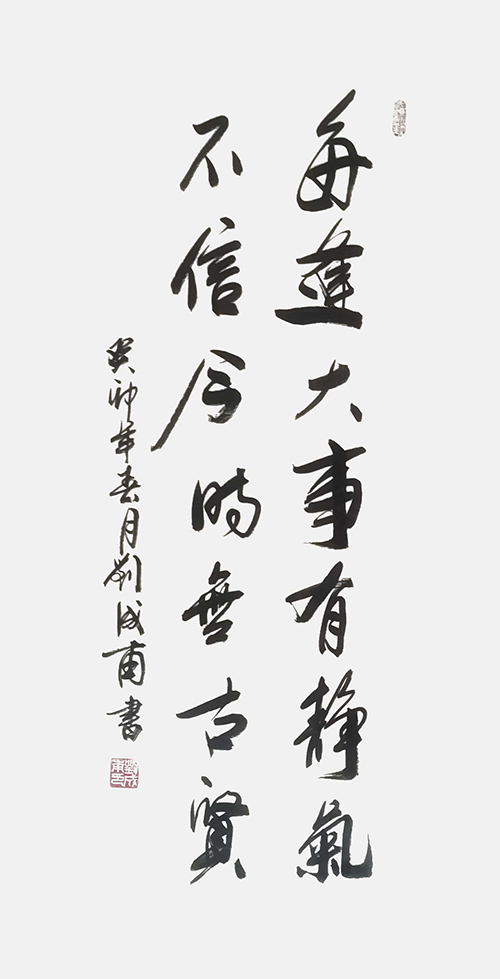 每逢大事有静氣
不信今時無古賢
癸卯年春月劉成甫書